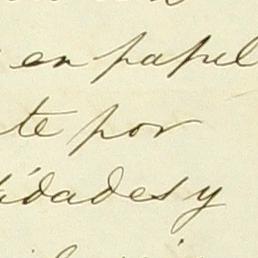 en papel
te por
idades y